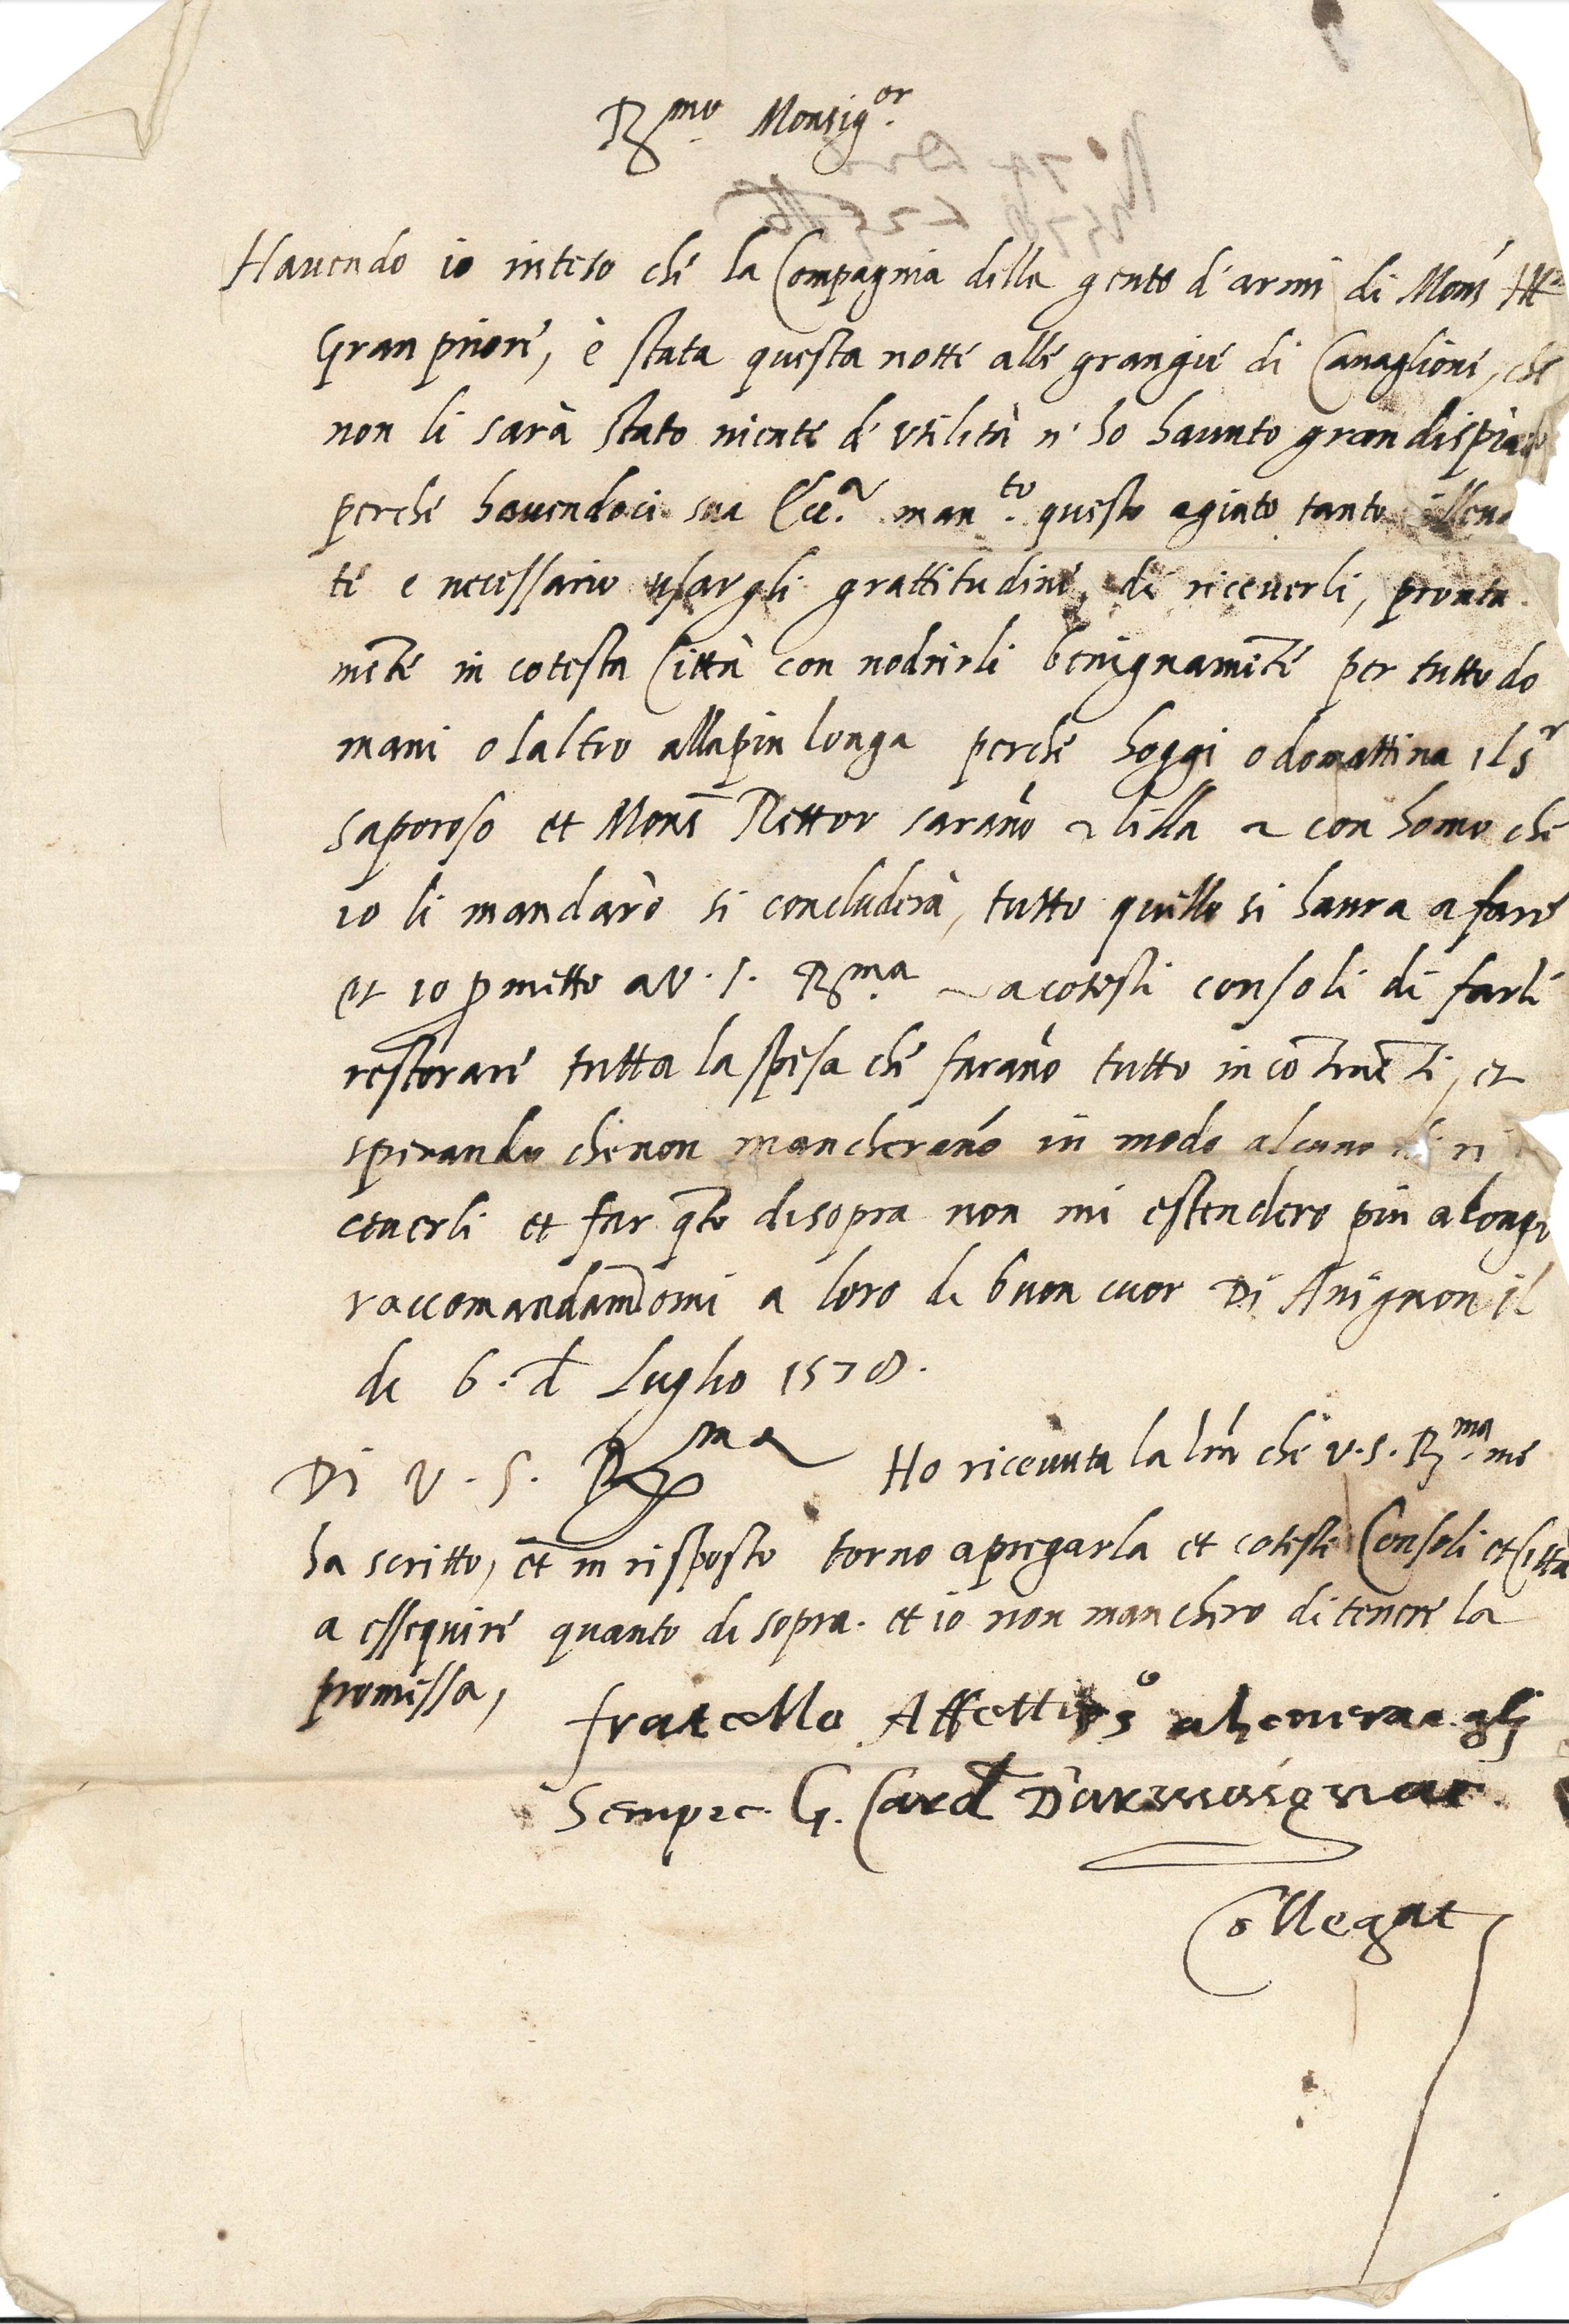 R.mo Monsig.or
Havendo io inteso che la Compagnia della gente d'armi di Mons.r Ill.
Gran priore, è stata questa notte alle grangie di Cavaglione, che
non li sarà stato niente d'utilità n'ho havuto gran dispia
perche havendoci sua Ecc.a man.to questo agiuto tanto
te e necessario usargli grattitudine, di riceverli, pronta
mēte in cotesta Città con nodrirli benignamēte per tutto do
mani o laltro alla piu longa perche hoggi o domattina il s.r
saporoso et Mons.r Rettor sarāno lilla con homo che
io li mandarò si concluderà, tutto quello si havra a fare
et io ꝓmetto a V. S. R.ma a cotesti consoli di farli
restorare tutta la spesa che farāno tutto in cōtinēti, et
sperando che non mancherāno in modo alcuno di ri
ceverli et far q̄to di sopra non mi estendero piu a longo
raccomandamdomi a loro di buon cuor Di Avignon il
di 6. d Luglio 1578.
Di V. S. R.ma Ho ricevuta la lr̄a che V. S. R.ma me
ha scritto, et in risposto torno a pregarla et cotesti Consoli et Città
a essequire quanto di sopra. et io non manchero di tenere la
promissa,
fratello Affettis.o
Sempre. G. Card.l D'armaignac.
Collegat